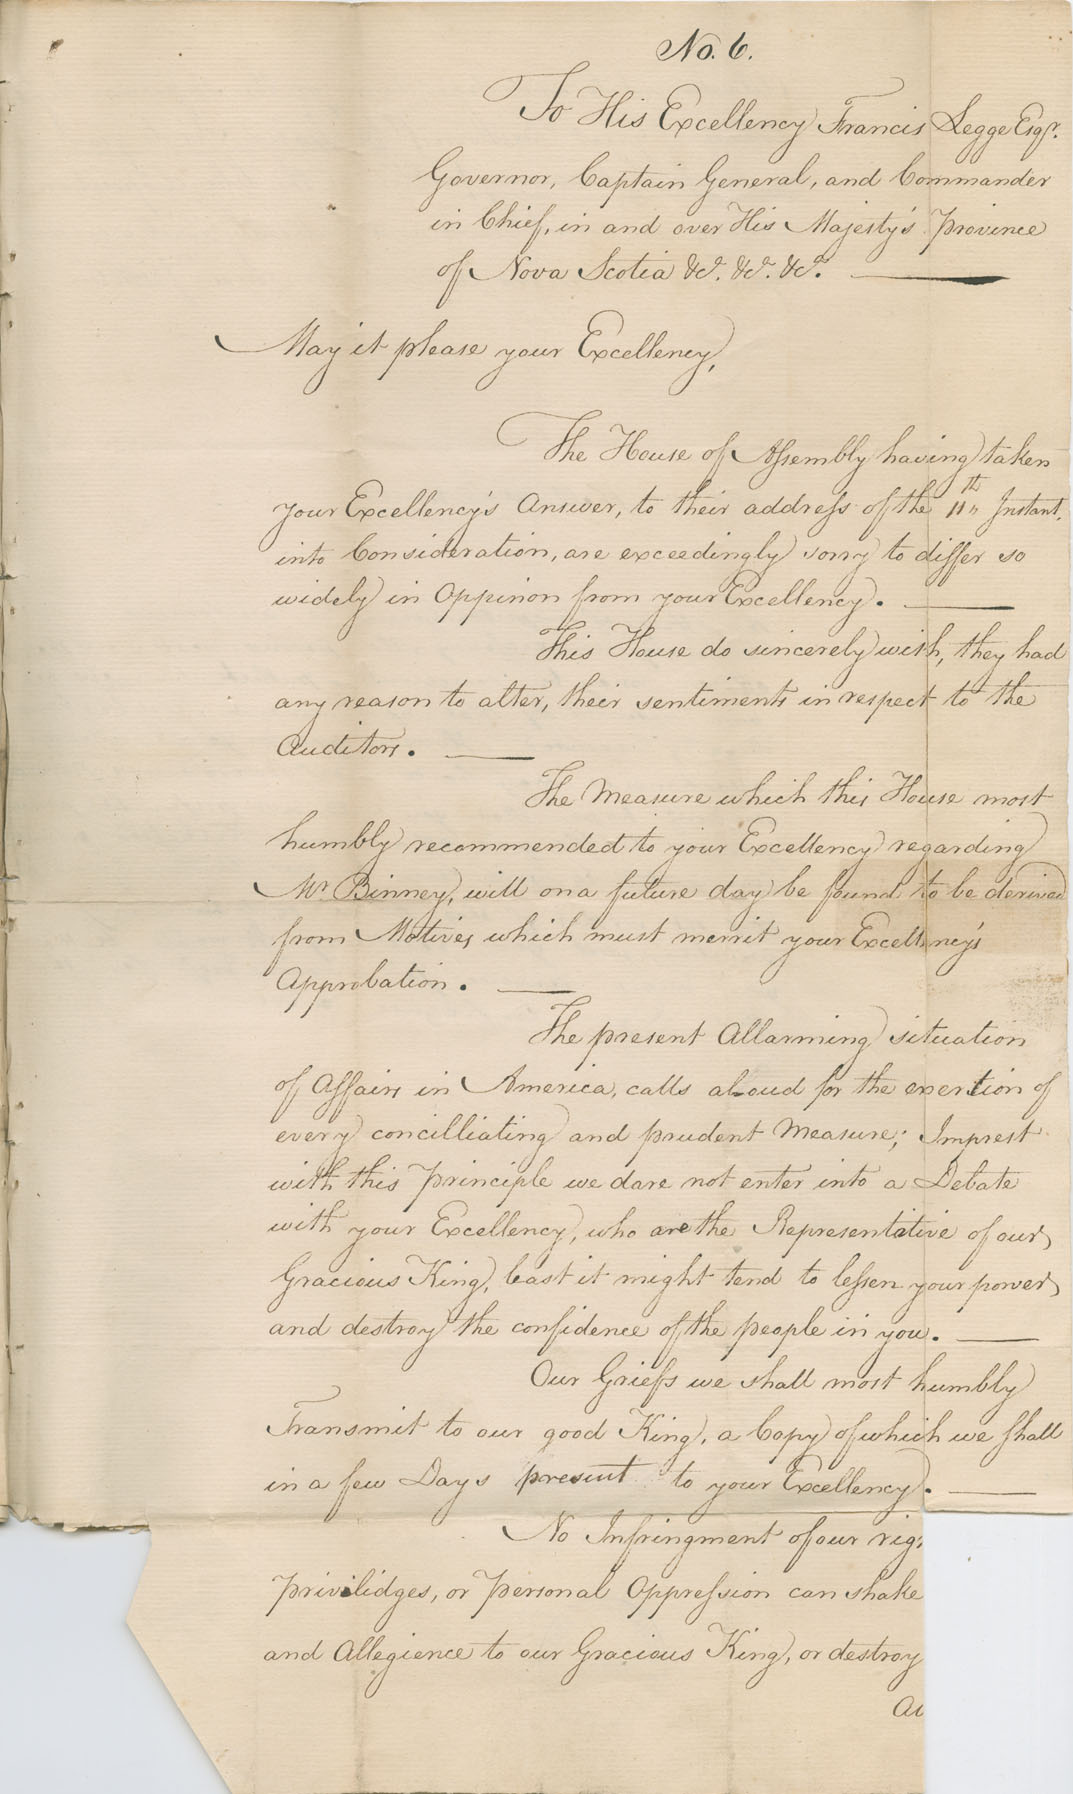 No. 6.
To His Excellency Francis Legge Esqr.
Governor, Captain General, and Commander
in Chief, in and over His Majesty's Province
of Nova Scotia &ca. &ca. &ca.
May it please your Excellency,
The House of Assembly having taken
your Excellency's Answer, to their address of the 11th Instant,
into Consideration, are exceedingly sorry to differ so
widely in Oppinion from your Excellency.
This House do sincerely wish, they had
any reason to alter, their sentiments in respect to the
Auditors.
The Measure which this House most
humbly recommended to your Excellency regarding
Mr Binney, will on a future day be found to be derived
from Motives which must merrit your Excellency's
Approbation.
The present Allarming situation
of Affairs in America, calls aloud for the exertion of
every concilliating and prudent Measure; Imprest
with this Principle we dare not enter into a Debate
with your Excellency, who are the Representative of our
Gracious King, least it might tend to lessen your power
and destroy the confidence of the people in you.
Our Griefs we shall most humbly
Transmit to our good King, a Copy of which we shall
in a few Days present to your Excellency.
No Infringment of our rig
Priviledges, or Personal Oppression can shake
and Allegience to our Gracious King, or destroy